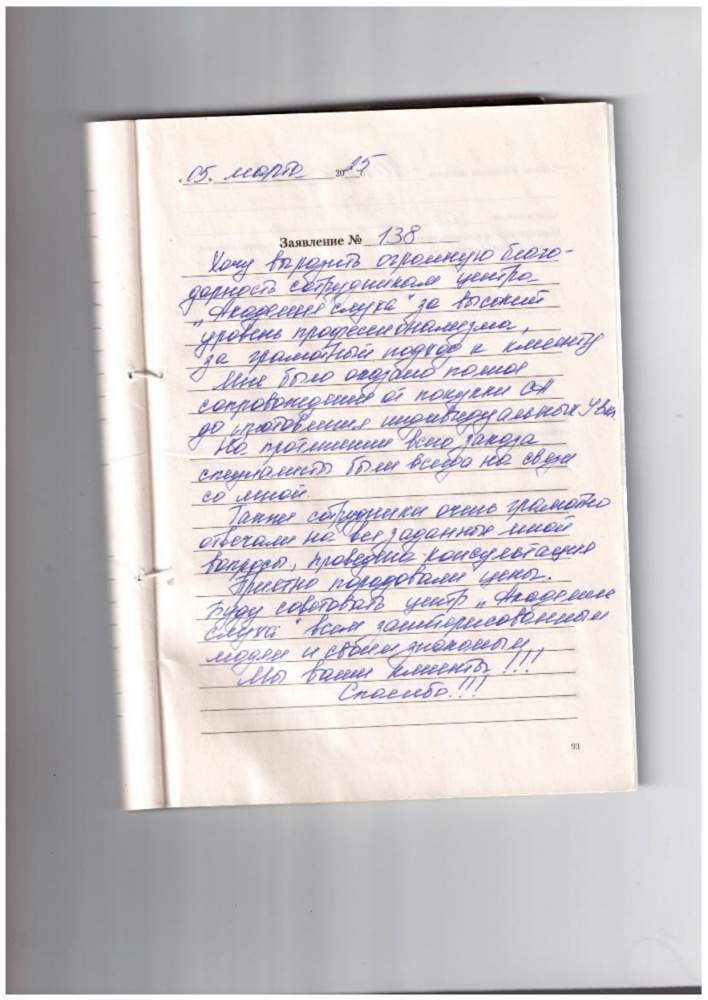 05. марта 2025 г.
Заявление № 138
Хочу выразить огромную благо-
дарность сотрудникам центра
„Академия слуха" за высокий
уровень профессионализма,
за грамотный подход к клиенту.
Мне было оказано полное
сопровождение от покупки СА
до изготовления индивидуальных
На протяжении всего заказа
специалисты были всегда на связи
со мной.
Также сотрудники очень грамотно
отвечали на все заданные мной
вопросы, проведена консультация
Приятно порадовали цены.
Буду советовать центр „Академия
слуха" всем заинтересованным
людям и своим знакомым
Мы ваши клиенты!!!
Спасибо!!!
93